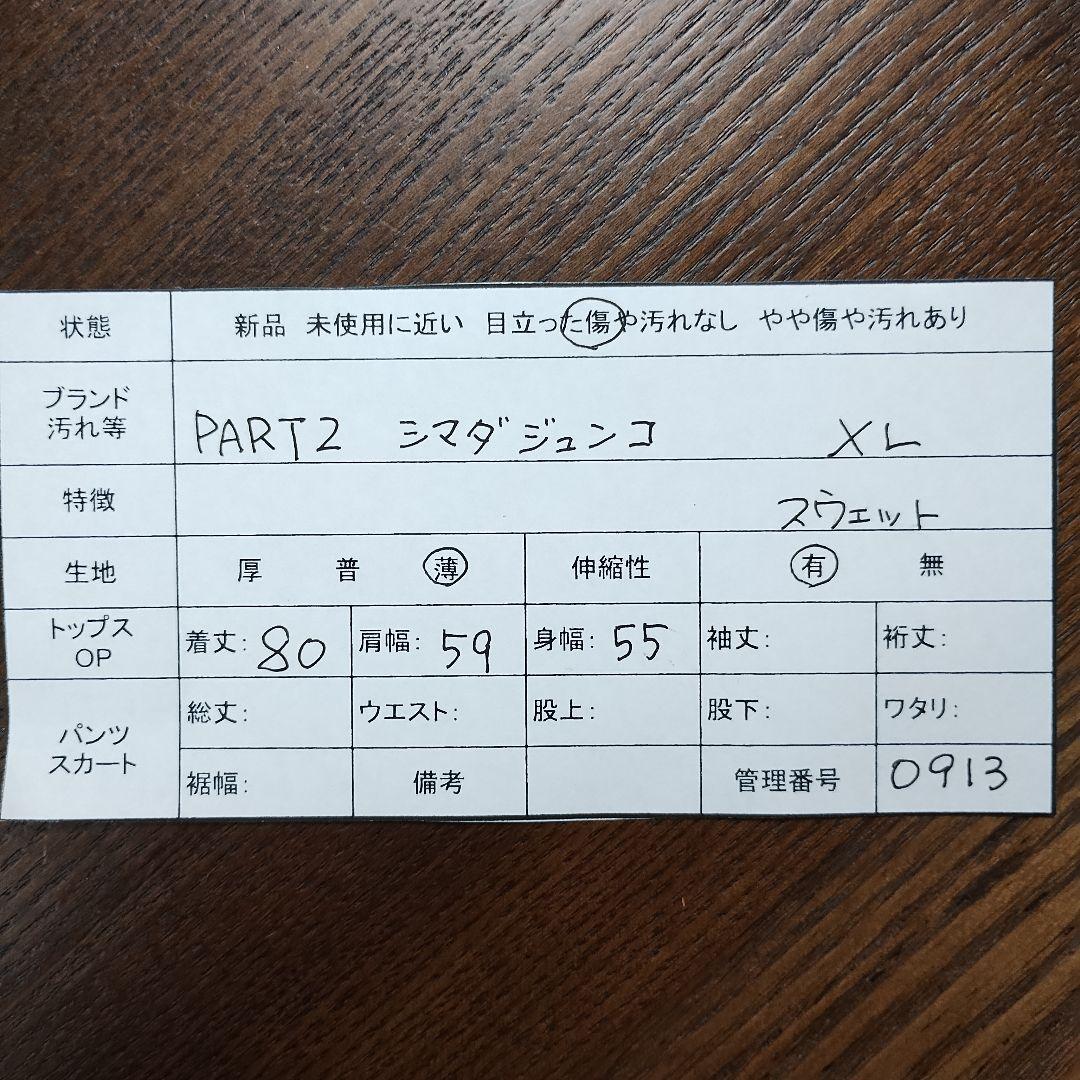 状態 新品 未使用に近い 目立った傷や汚れなし やや傷や汚れあり
ブランド
汚れ等 PART2 シマダジュンコ XL
特徴 スウェット
生地 厚 普 薄 伸縮性 有 無
トップス
OP 着丈: 80 肩幅: 59 身幅: 55 袖丈: 裄丈:
パンツ
スカート 総丈: ウエスト: 股上: 股下: ワタリ:
裾幅: 備考 管理番号 0913